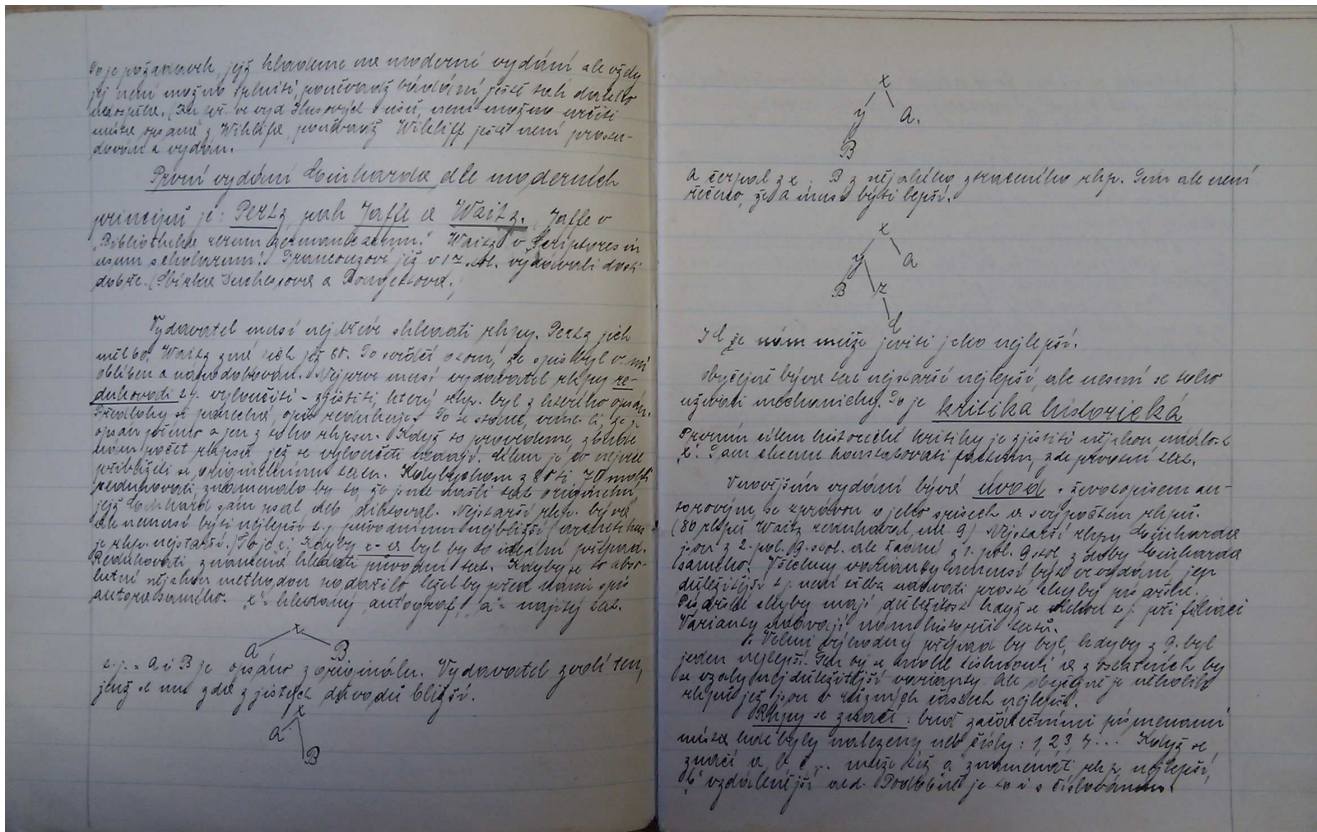 To je požadavek, jejž klademe na moderní vydání ale vždy
jej není možno splniti, poněvadž bádání ještě tak daleko
není možno určiti
místa opsané z Wikleffa, poněvadž Wikleff ještě není prozkou-
dován a vydán.
První vydání Einharda dle moderních
principů je: Pertz pak Jaffe a Waitz. Jaffe v
"Bibliotheka rerum germanicarum." Waitz v "Scriptores in
usum scholarum". Francouzové již v 17. stol. vydávali dosti
dobře. (Sbírka Duchesnova a Bouquetova.)
Vydavatel musí nejdříve shledati rkpy. Pertz jich
měl 60, Waitz zná jich již 80. To svědčí o tom, že spis byl
oblíben a napodobován. Nejprve musí vydavatel rkpy re-
dukovati t.j. vyloučiti - zjistiti který rkp. byl z kterého opsán.
opsán přímo a jen z toho rkpsu. Když to provedeme, zbude
nám počet rkpsů, jež se vyloučiti nedají. Cílem je co nejvíce
přiblížiti se originelnímu textu. Kdybychom z 80 ti 70 mohli
redukovati, znamenalo by to, že jsme došli k
jejž Einhard sám psal neb diktoval. Nejstarší rkp. bývá,
ale nemusí býti nejlepší t.j. původnímu nejbližší
je rkp. nejstarší.) Kdyby x = a byl by to ideální případ.
Redukovati znamená hledati původní text. Kdyby se to abso-
lutní nějakou methodou podařilo ležel by před námi spis
autora samého. "x" = hledaný autograf, "a" = najitý text.
x
A B
t.j. = A i B je opsáno z originálu. Vydavatel zvolí ten,
jenž se mu zdá z jistých důvodů bližší.
x
a
B
x
y a.
B
A čerpal z x. B z nějakého ztraceného rkp. Tím ale není
řečeno, že A musí býti lepší.
x
y a
B z
C
I C se nám může jeviti jako nejlepší.
Obyčejně bývá text nejstarší nejlepší, ale nesmí se toho
užívati mechanicky. To je kritika historická
Prvním cílem historické kritiky je zjistiti nějakou událost
"x". Tam chceme konstatovati faktum, zde prvotní text.
V novějším vydání bývá úvod s životopisem au-
torovým, se zprávou o jeho spisech a s rozpočtem rkpů.
(80 rkpů Waitz redukoval na 9) Nejstarší rkpy Einharda
jsou z 2. pol. 9. stol. ale žádné z 1. pol. 9. stol. z doby Einharda
samého. Všechny varianty nemusí býti uvedeny, jen
důležitější t.j. není třeba uváděti prosté chyby písařské.
Písařské chyby mají důležitost když se t.j. při filiaci
Varianty podávají nám historii textů.
Velmi výhodný případ by byl, kdyby z 9. byl
jeden nejlepší. Ten by se mohl tisknouti a z ostatních by
se vzaly nejdůležitější varianty. Ale obyčejně je několik
rkpů jež jsou v různých částech nejlepší.
Rkpy se značí: buď začátečními písmenami
místa kde byly nalezeny neb čísly: 1, 2, 3, 4... Když se
značí a, b, c,... může též a znamenati rkp. nejlepší,
"b" vzdálenější atd. Podobně je to i s číslováním.